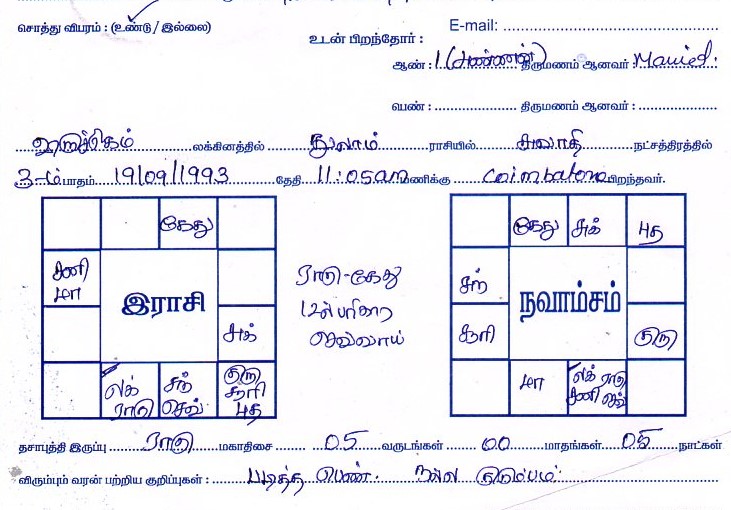 சொத்து விபரம் : (உண்டு / இல்லை)
E-mail:
உடன் பிறந்தோர் :
ஆண் : 1 (அண்ணன்) திருமணம் ஆனவர் : Married.
பெண் : திருமணம் ஆனவர் :
லக்கினத்தில் துலாம் ராசியில் சுவாதி நட்சத்திரத்தில்
3-ம் பாதம் 19/09/1993 தேதி 11:05am மணிக்கு Coimbatore பிறந்தவர்.
கேது
கேது சுக் புத
சனி
மா
இராசி
ராகு-கேது
சந்
நவாம்சம்
சுக்
செவ்வாய்
சூரி
குரு
லக்
ராகு
சந்
செவ்
குரு
சூரி
புத
மா
லக் ராகு
சனி செவ்
தசாபுத்தி இருப்பு ராகு மகாதிசை 05 வருடங்கள் 00 மாதங்கள் 05 நாட்கள்
விரும்பும் வரன் பற்றிய குறிப்புகள் : படித்த பெண். நல்ல குடும்பம்.